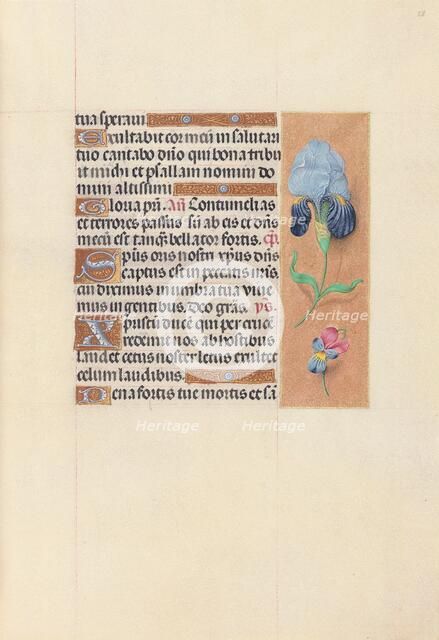 28
tua speravi
Exultabit cor meũ in salutari
tuo cantabo dño qui bona tribu
it michi et psallam nomini do
mini altissimi
Gloria pr̃i. Añ Contumelias
et terrores passus sũ ab eis et dñs
mecũ est tanq̃ bellator fortis. cp̃.
Spũs oris nostri xp̃us dñs
captus est in peccatis nr̃is,
cui diximus in umbra tua vive
mus in gentibus. Deo gr̃as. ym̃s
Xp̃usti ducẽ qui per crucẽ
redemit nos ab hostibus
laudet cetus noster letus exultet
celum laudibus.
Pena fortis tue mortis et sã
Heritage Heritage
Heritage Heritage
Heritage Heritage